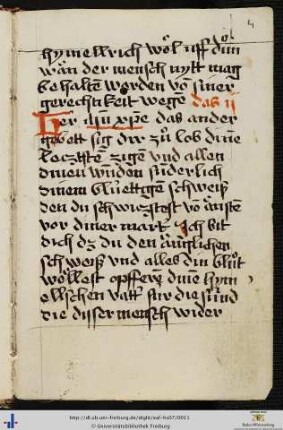 4
hymellrich wöl uff dun
wan der mensch nytt mag
behalten werden vō siner
gerechtikeit wegē das ij
Her ihu xp̄e das ander
gebett sig dir zů lob dinē
leczsten zigen vnd allen
dinen wunden sunderlich
dinem blůettgen schweiß
den du schwicztest vō ängsten
vor diner mart Ich bit
dich dz du den änglichen
schweiß vnd alles din blůt
wöllest opfferē dinē hym
elschen vatt für die sünd
die disser mensch wider
http://dl.ub.uni-freiburg.de/diglit/
© Universitätsbibliothek Freiburg
Baden-Württemberg